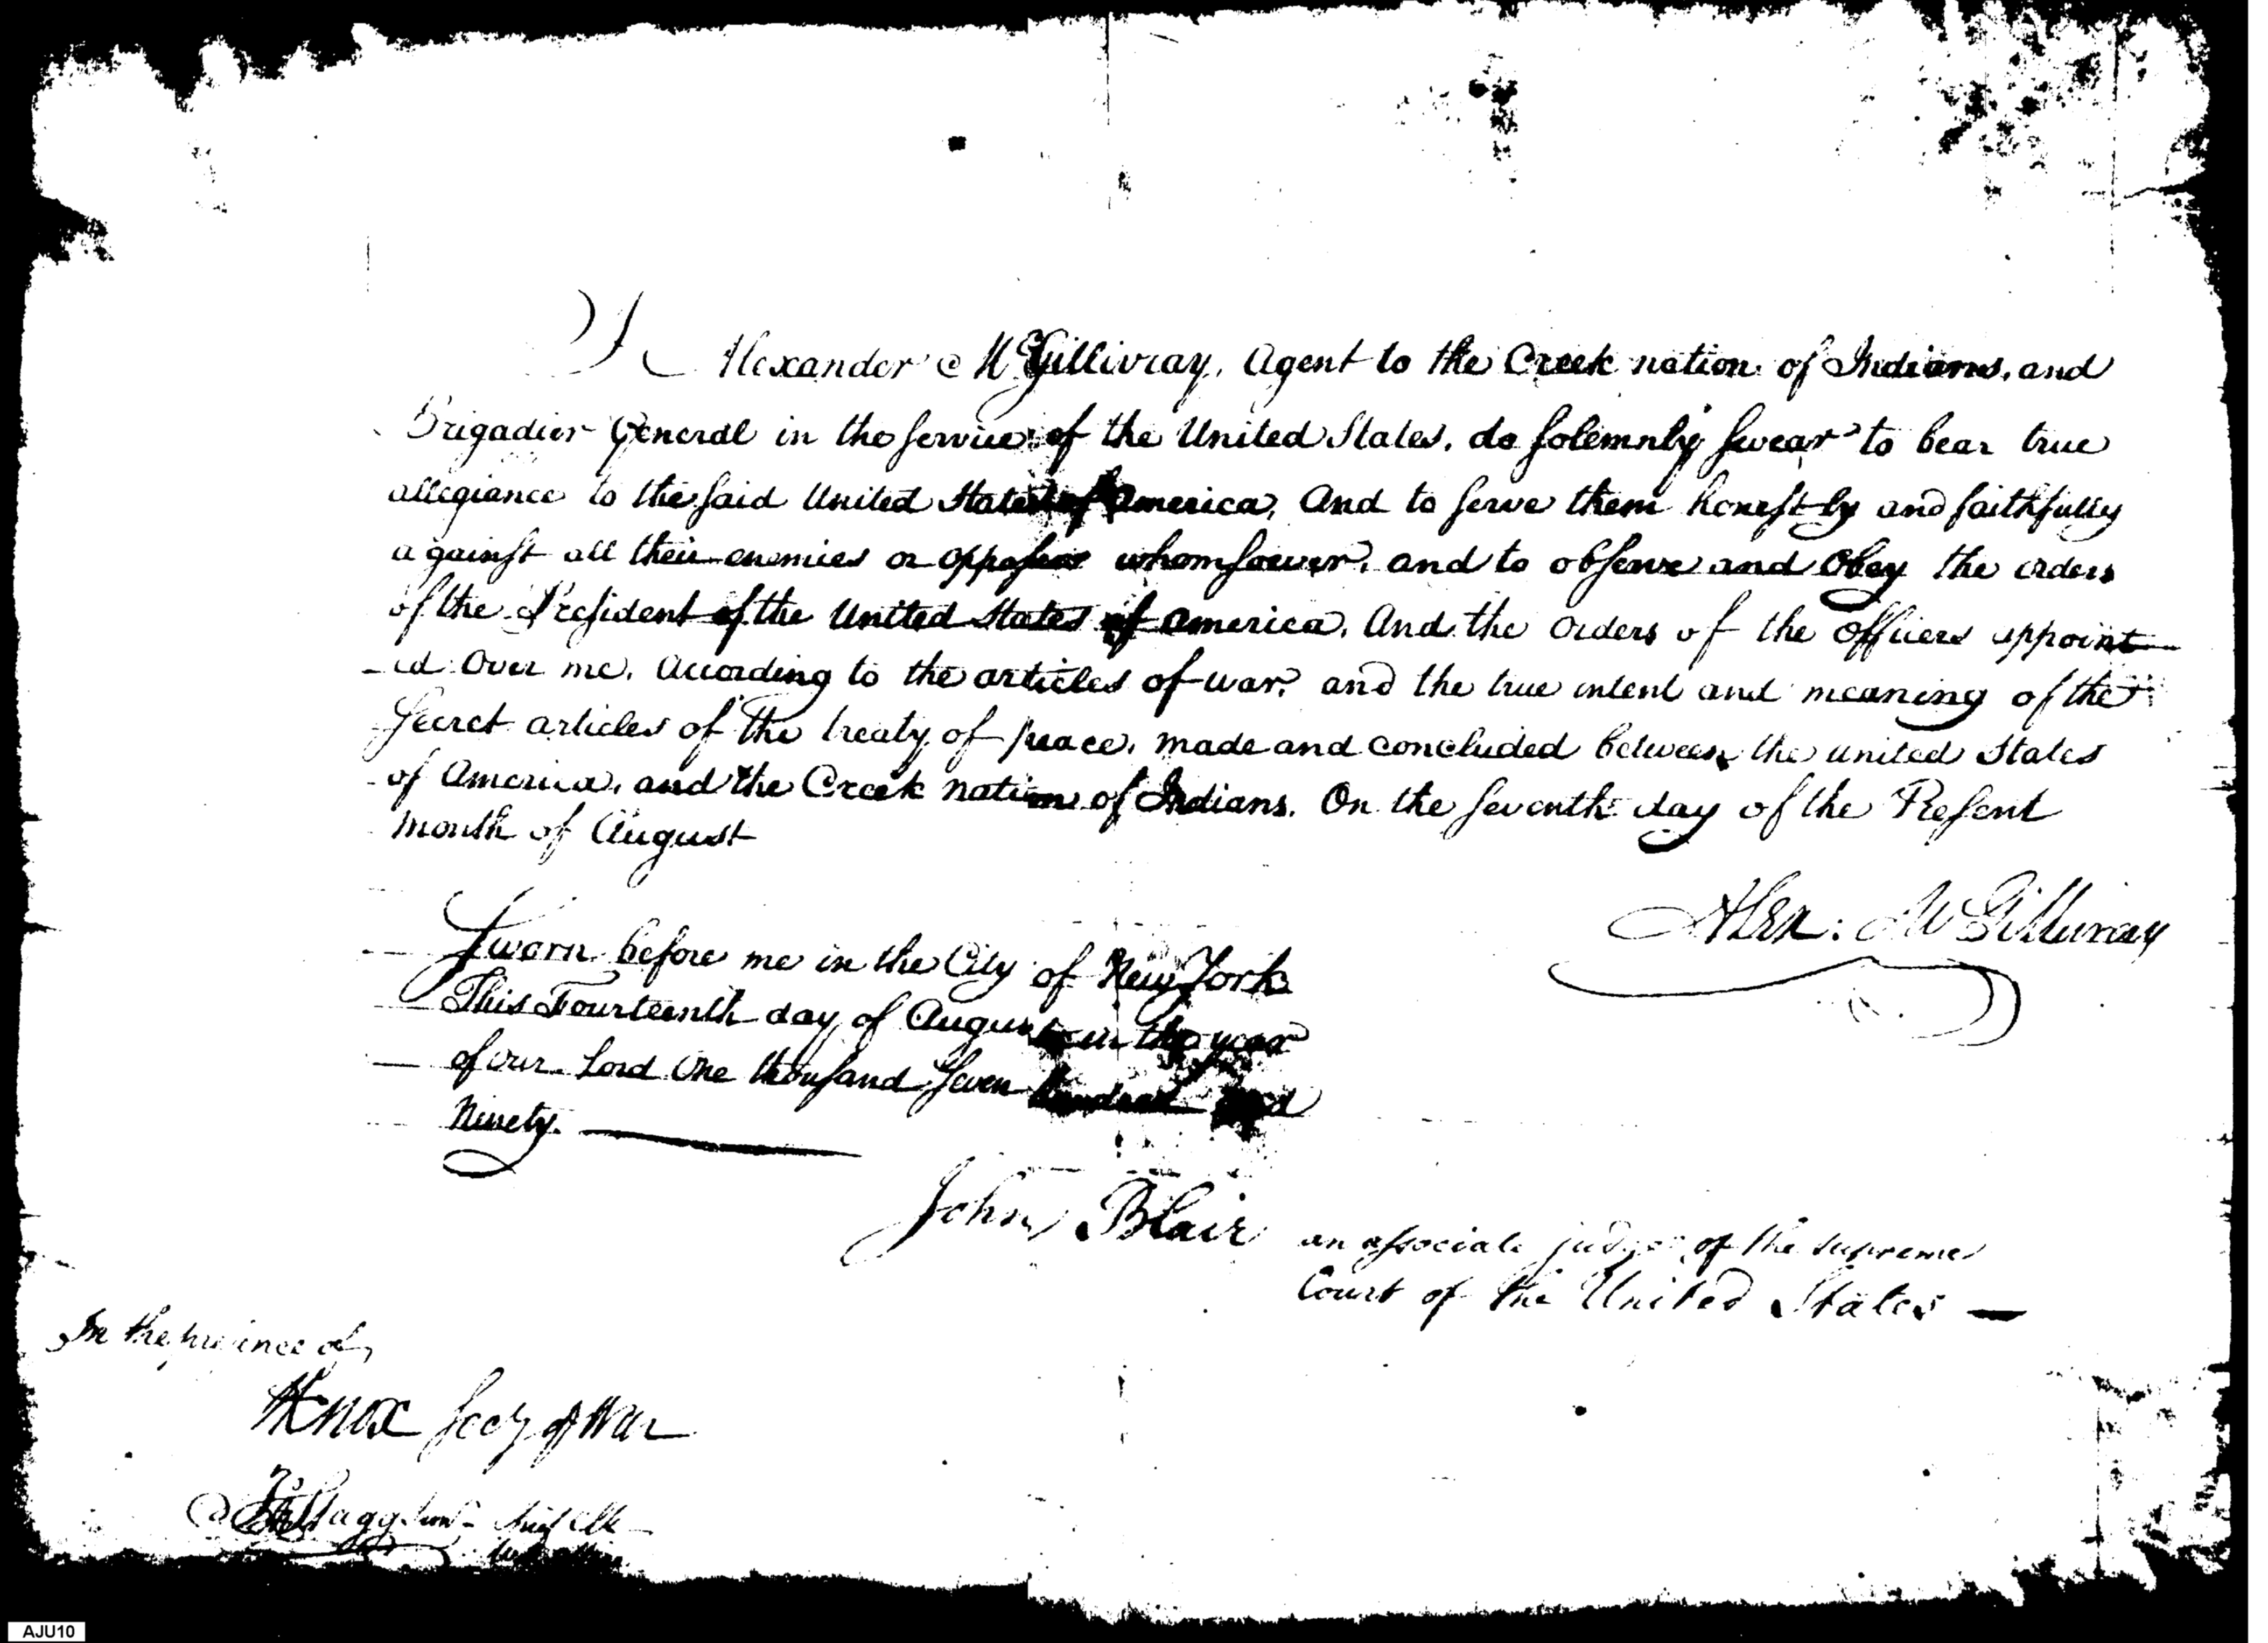 I Alexander McGillivray, Agent to the Creek nation of Indians, and
Brigadier General in the service of the United States, do solemnly swear to bear true
allegiance to the said United States of America, And to serve them honestly and faithfully
against all their enemies or opposers whomsoever, and to observe and obey the orders
of the President of the United States of America, And the orders of the officers appoint
-ed Over me, According to the articles of war, and the true intent and meaning of the
Secret articles of the treaty of peace, made and concluded between the united States
of America, and the Creek nation of Indians, On the seventh day of the Present
month of August
Alex: McGillivray
Sworn before me in the City of New York
This Fourteenth day of August in the year
of our Lord One thousand Seven hundred and
Ninety.
John Blair an associate judge of the supreme
Court of the United States —
In the presence of
HKnox Secy of War
Stagg Junr Chief Clk
AJU10